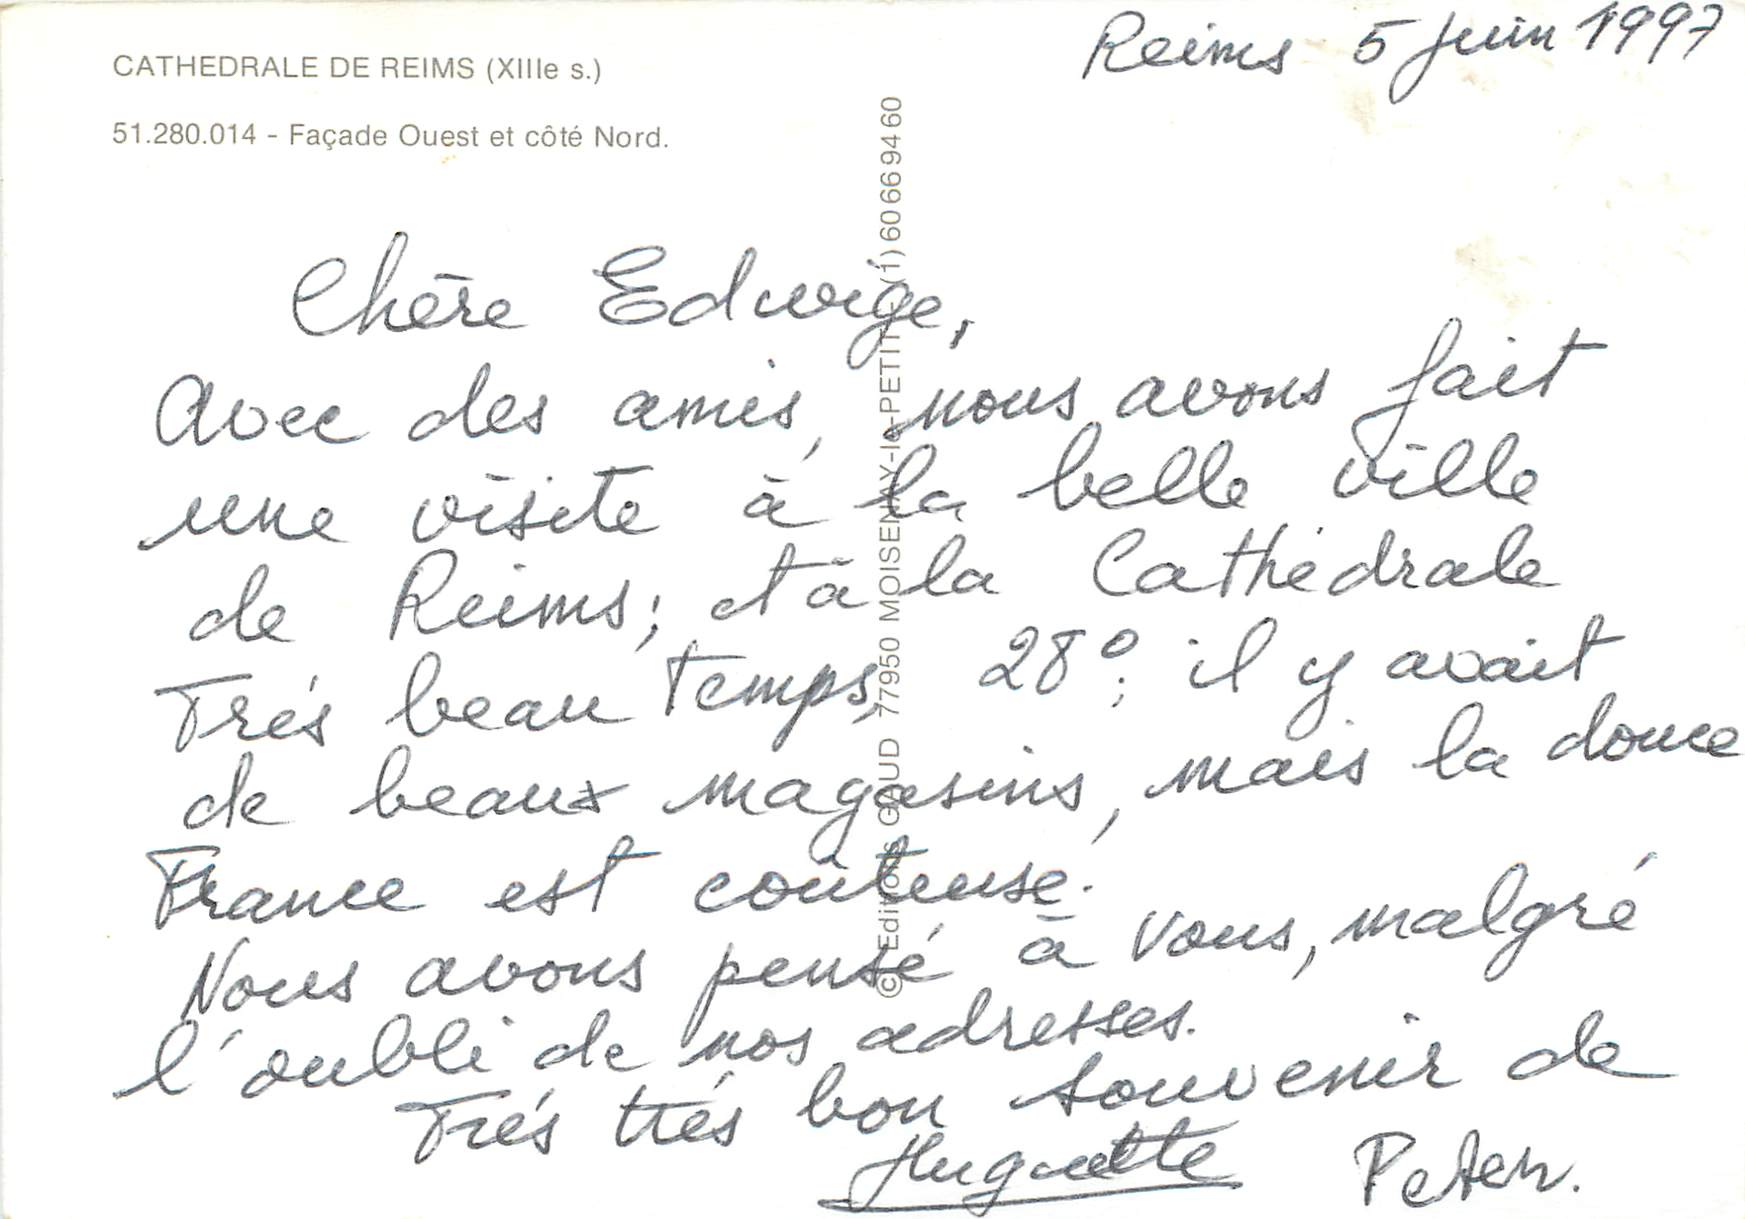 CATHEDRALE DE REIMS (XIIIe s.)
51.280.014 - Façade Ouest et côté Nord.
Reims 5 juin 1997
© Editions GAUD 77950 MOISENAY-le-PETIT - (1) 60 66 94 60
Chère Edwige,
Avec des amis, nous avons fait
une visite à la belle ville
de Reims; et à la Cathédrale
Trés beau temps, 28°; il y avait
de beaux magasins, mais la douce
France est couteuse.
Nous avons pensé à vous, malgré
l'oubli de nos adresses.
Trés trés bon souvenir de
Huguette Peter.